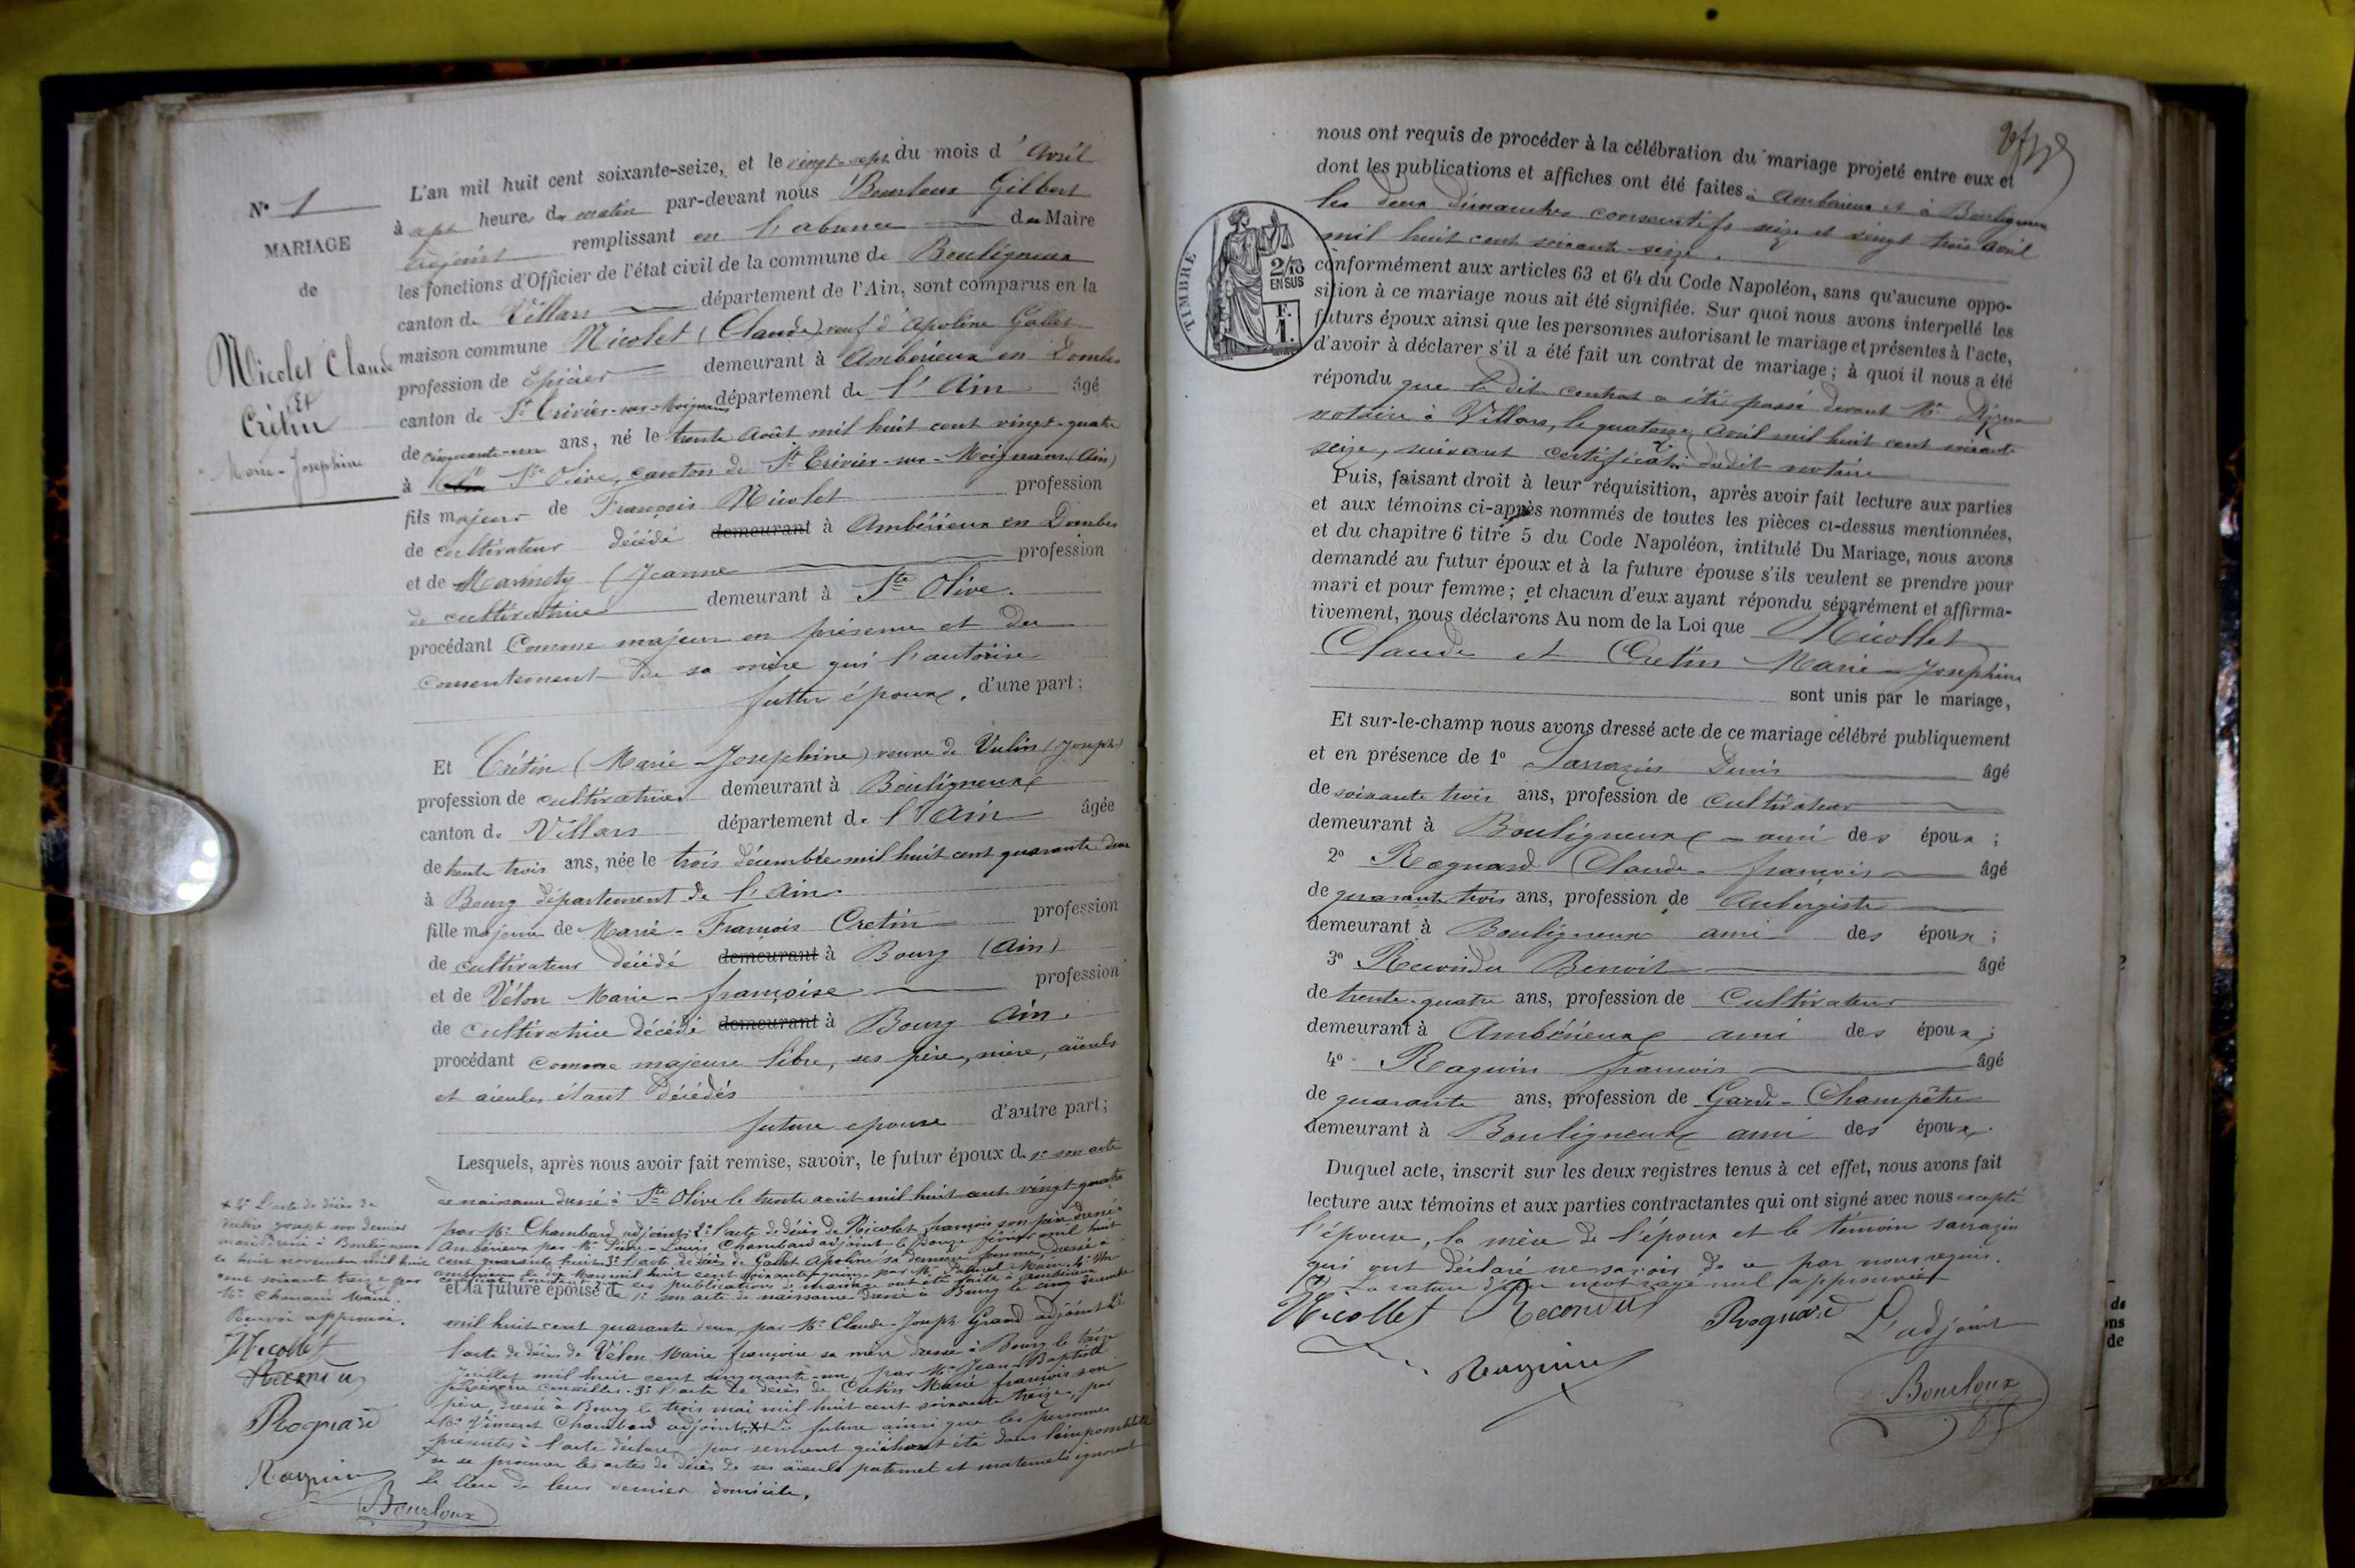 N° 1
MARIAGE
de
Nicolet Claude
Et
Crétin
Marie-Josephine
L'an mil huit cent soixante-seize, et le vingt-sept du mois d'Avril
à sept heures du matin par-devant nous Bourloux Gilbert
adjoint remplissant en l'absence du Maire
les fonctions d'Officier de l'état civil de la commune de Bouligneux
canton de Villars département de l'Ain, sont comparus en la
maison commune Nicolet (Claude) veuf d'Apoline Gallet
profession de Epicier demeurant à Ambérieux en Dombes
canton de St Trivier-sur-Moignans département de l'Ain âgé
de cinquante-un ans, né le trente Août mil huit cent vingt-quatre
à Ste Olive, canton de St Trivier-sur-Moignans (Ain)
fils majeur de François Nicolet profession
de cultivateur décédé demeurant à Ambérieux en Dombes
et de Marmety (Jeanne profession
de cultivatrice demeurant à Ste Olive.
procédant Comme majeur en présence et du
consentement de sa mère qui l'autorise
futur époux, d'une part;
Et Crétin (Marie-Josephine) veuve de Vulin (Joseph)
profession de cultivatrice demeurant à Bouligneux
canton de Villars département de l'Ain âgée
de trente trois ans, née le trois décembre mil huit cent quarante deux
à Bourg département de l'Ain.
fille majeure de Marie-François Cretin profession
de cultivateur décédé demeurant à Bourg (Ain)
et de Vélon Marie-françoise profession
de cultivatrice décédé demeurant à Bourg Ain.
procédant comme majeure libre, ses père, mère, aïeuls
et aïeules étant décédés
future epouse d'autre part;
Lesquels, après nous avoir fait remise, savoir, le futur époux de 1° son acte
de naissance dressé à Ste Olive le trente août mil huit cent vingt quatre
par Mr Chambard adjoint; 2° l'acte de décès de Nicolet françois son père dressé à
Ambérieux par Mr Louis Chambard adjoint le douze février mil huit
cent quarante huit; 3° l'acte de décès de Gallet Apoline sa dernière femme, dressé à
et la future épouse de 1° son acte de naissance dressé à Bourg le cinq décembre
mil huit cent quarante deux, par Mr Claude-Joseph Grand adjoint 2°
l'acte de décès de Vélon Marie françoise sa mère dressé à Bourg le treize
Juillet mil huit cent cinquante-un, par Mr Jean-Baptiste
conseiller. 3° l'acte de décès de Cretin Marie françois son
père, dressé à Bourg le trois mai mil huit cent soixante treize, par
Mr Vincent Chambard adjoint. La future ainsi que les personnes
présentes à l'acte déclare par serment été dans l'impossibilité
de se procurer les actes de décès de ses aïeuls paternel et maternels ignorant
le lieu de leur dernier domicile.
4° L'acte de décès de
Vulin Joseph son dernier
mari dressé à Bouligneux
le huit novembre mil huit
cent soixante treize par
Mr Maire.
Renvoi approuvé.
Nicollet
Recondu
Rognard
Raquin
Bourloux
nous ont requis de procéder à la célébration du mariage projeté entre eux et
dont les publications et affiches ont été faites à Ambérieux et à Bouligneux
les deux dimanches consécutifs seize et vingt trois avril
mil huit cent soixante-seize.
TIMBRE
2/10
EN SUS
F.
1.
conformément aux articles 63 et 64 du Code Napoléon, sans qu'aucune oppo-
sition à ce mariage nous ait été signifiée. Sur quoi nous avons interpellé les
futurs époux ainsi que les personnes autorisant le mariage et présentes à l'acte,
d'avoir à déclarer s'il a été fait un contrat de mariage; à quoi il nous a été
répondu que le dit contrat a été passé devant Me
notaire à Villars, le quatorze avril mil huit cent soixante
seize, suivant certificat dudit notaire
Puis, faisant droit à leur réquisition, après avoir fait lecture aux parties
et aux témoins ci-après nommés de toutes les pièces ci-dessus mentionnées,
et du chapitre 6 titre 5 du Code Napoléon, intitulé Du Mariage, nous avons
demandé au futur époux et à la future épouse s'ils veulent se prendre pour
mari et pour femme; et chacun d'eux ayant répondu séparément et affirma-
tivement, nous déclarons Au nom de la Loi que Nicollet
Claude et Cretin Marie-Josephine
sont unis par le mariage,
Et sur-le-champ nous avons dressé acte de ce mariage célébré publiquement
et en présence de 1° Sarrazin Denis âgé
de soixante trois ans, profession de cultivateur
demeurant à Bouligneux ami des époux;
2° Rognard Claude-françois âgé
de quarante trois ans, profession de Aubergiste
demeurant à Bouligneux ami des époux;
3° Recondu Benoit âgé
de trente-quatre ans, profession de Cultivateur
demeurant à Ambérieux ami des époux;
4° Raquin francois âgé
de quarante ans, profession de Garde-Champêtre
demeurant à Bouligneux ami des époux.
Duquel acte, inscrit sur les deux registres tenus à cet effet, nous avons fait
lecture aux témoins et aux parties contractantes qui ont signé avec nous excepté
l'épouse, la mère de l'époux et le témoin sarrazin
qui ont déclaré ne savoir de ce par nous requis.
La rature d'un mot rayé nul approuvée
Nicollet Recondu Rognard L'adjoint
Raquin Bourloux